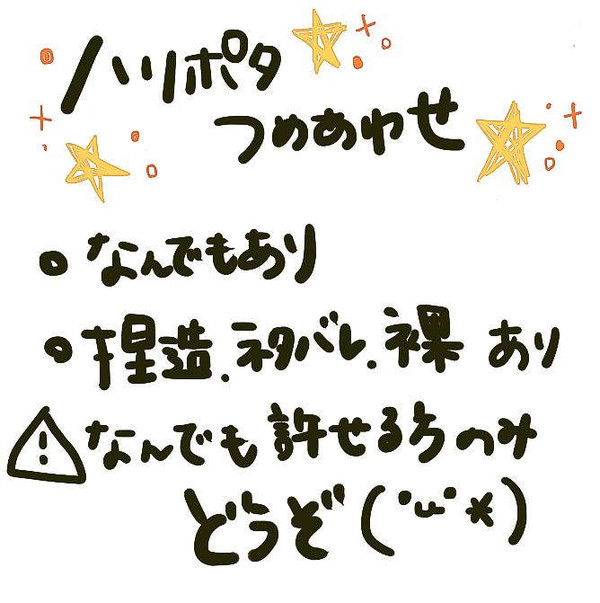 ハリポタ
つめあわせ
• なんでもあり
• 捏造.ネタバレ.裸 あり
⚠ なんでも許せる方のみ
どうぞ(˙ω˙*)